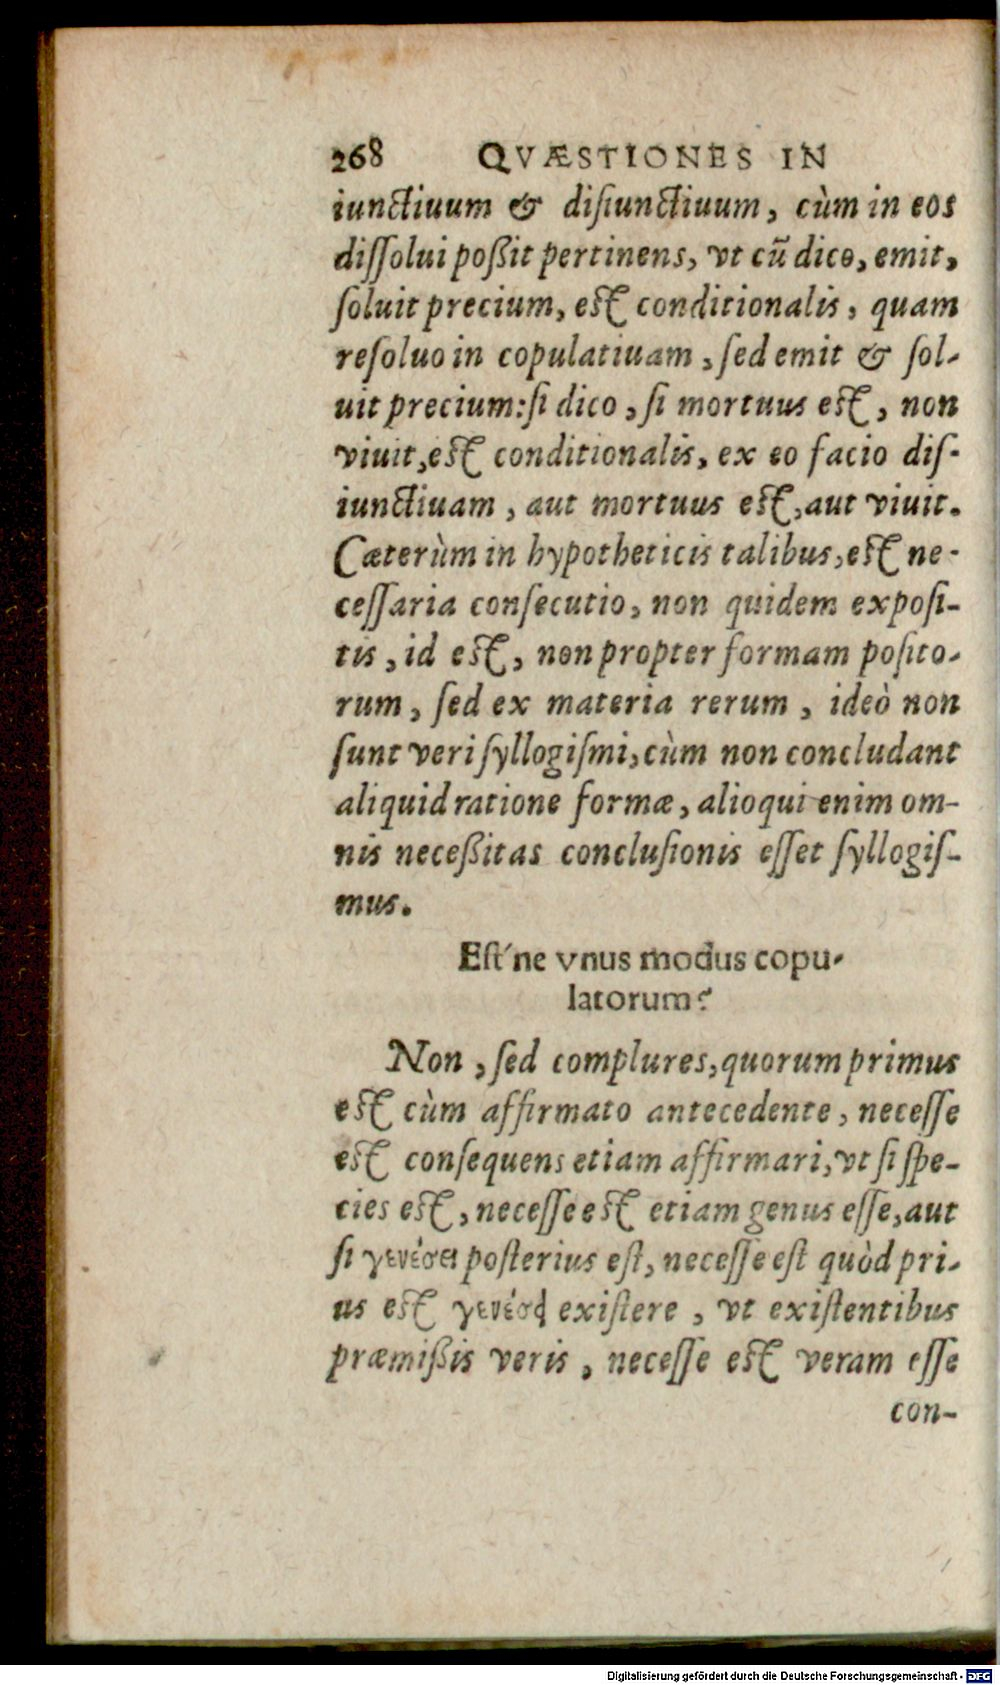 268 QVÆSTIONES IN
iunctiuum & disiunctiuum, cùm in eos
dissolui poßit pertinens, vt cū dico, emit,
soluit precium, est conditionalis, quam
resoluo in copulatiuam, sed emit & sol-
uit precium: si dico, si mortuus est, non
viuit, est conditionalis, ex eo facio dis-
iunctiuam, aut mortuus est, aut viuit.
Cæterùm in hypotheticis talibus, est ne-
cessaria consecutio, non quidem exposi-
tis, id est, non propter formam posito-
rum, sed ex materia rerum, ideò non
sunt veri syllogismi, cùm non concludant
aliquid ratione formæ, alioqui enim om-
nis neceßitas conclusionis esset syllogis-
mus.
Est'ne vnus modus copu-
latorum?
Non, sed complures, quorum primus
est cùm affirmato antecedente, necesse
est consequens etiam affirmari, vt si spe-
cies est, necesse est etiam genus esse, aut
si γενέσει posterius est, necesse est quòd pri-
us est γενέσει existere, vt existentibus
præmißis veris, necesse est veram esse
con-
Digitalisierung gefördert durch die Deutsche Forschungsgemeinschaft - DFG